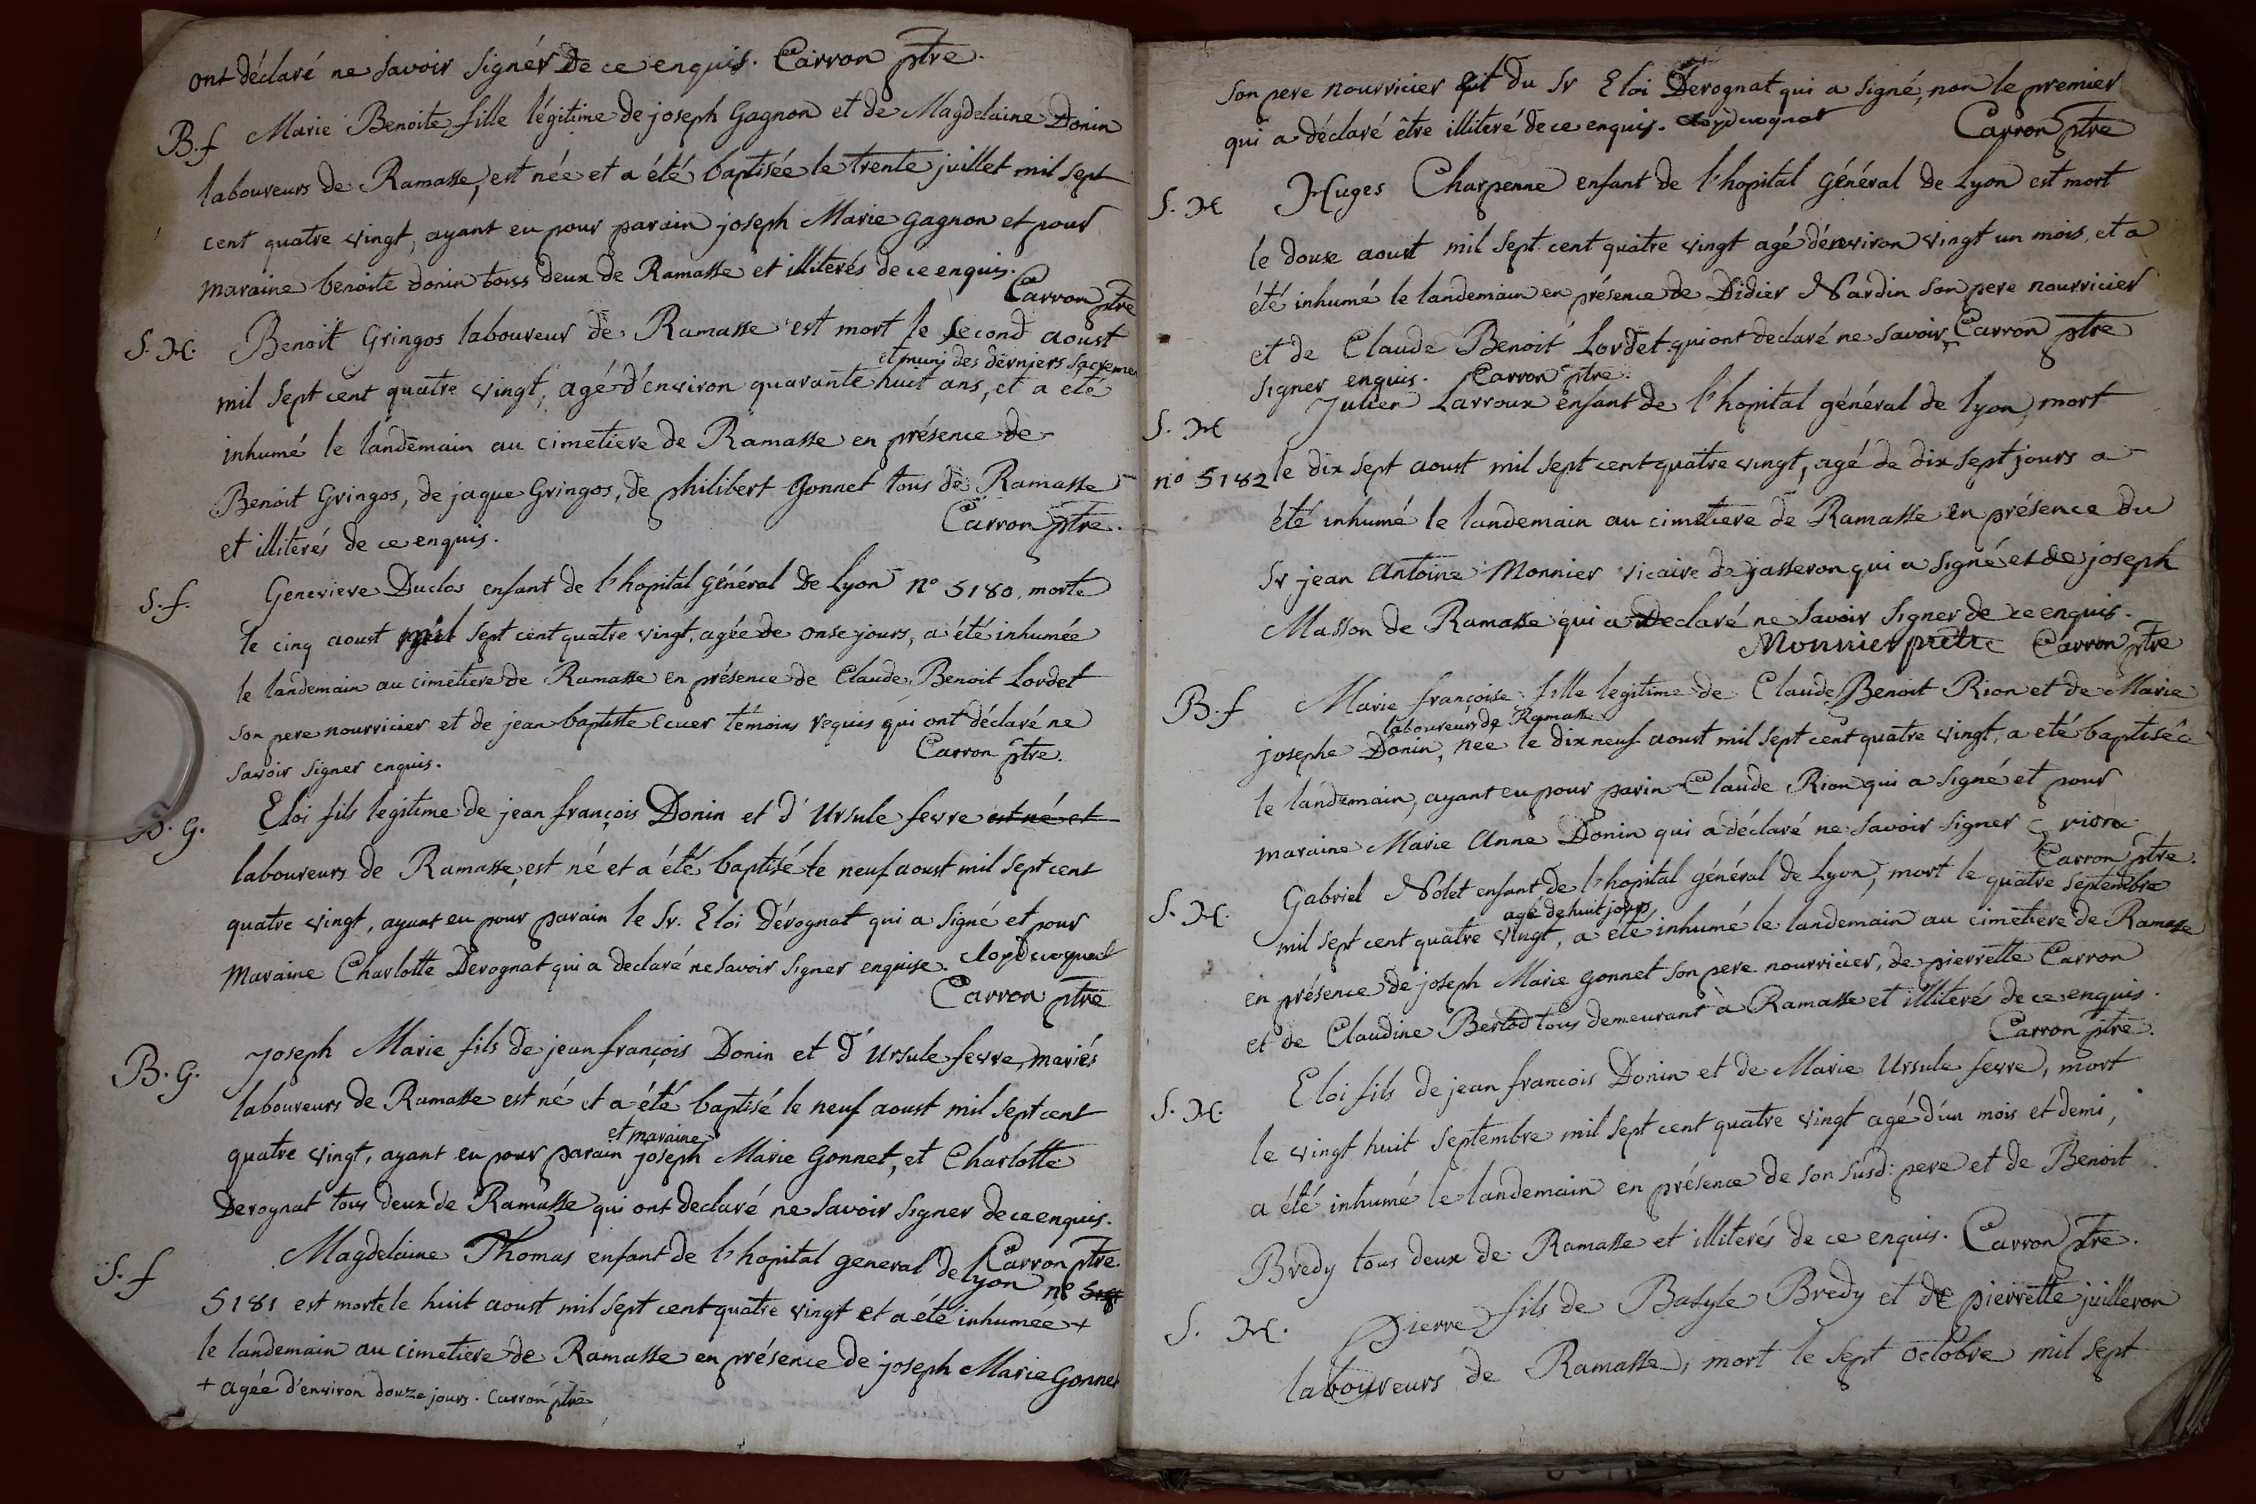 ont déclaré ne savoir signér de ce enquis. Carron ptre.
B.f Marie Benoite fille légitime de joseph Gagnon et de Magdelaine Donin
laboureurs de Ramasse, est née et a été baptisée le trente juillet mil sept
cent quatre vingt, ayant eu pour parain joseph Marie Gagnon et pour
maraine benoite donin tous deux de Ramasse et illiterés de ce enquis.
Carron ptre
S.M. Benoit Gringos laboureur de Ramasse est mort le second aoust
et muni des derniers sacreme
mil sept cent quatre vingt, agé d'environ quarante huit ans, et a eté
inhumé le landemain au cimetiere de Ramasse en présence de
Benoit Gringos, de jaque Gringos, de philibert Gonnet tous de Ramasse
et illiterés de ce enquis. Carron ptre.
S.f. Genevieve Duclos enfant de l'hopital général de Lyon n° 5180, morte
le cinq aoust mil sept cent quatre vingt, agée de onse jours, a été inhumée
le landemain au cimetiere de Ramasse en présence de Claude Benoit Lordet
son pere nourricier et de jean baptiste Ecuer témoins requis qui ont déclaré ne
savoir signer enquis. Carron ptre.
B.G. Eloi fils legitime de jean françois Donin et d'Ursule fevre est né et
laboureurs de Ramasse, est né et a été baptisé le neuf aoust mil sept cent
quatre vingt, ayant eu pour parain le Sr. Eloi Dérognat qui a signé et pour
maraine Charlotte Derognat qui a declaré ne savoir signer enquise. Eloy Derognat
Carron ptre
B.G. Joseph Marie fils de jean françois Donin et d'Ursule fevre, mariés
laboureurs de Ramasse est né et a été baptisé le neuf aoust mil sept cent
et maraine
quatre vingt, ayant eu pour parain joseph Marie Gonnet, et Charlotte
Derognat tous deux de Ramasse qui ont declaré ne savoir signer de ce enquis.
Carron ptre.
S.f Magdelaine Thomas enfant de l'hopital general de Lyon n°
5181 est morte le huit aoust mil sept cent quatre vingt et a été inhumée +
le landemain au cimetiere de Ramasse en présence de joseph Marie Gonnet
+ agée d'environ douze jours. Carron ptre
son pere nourricier et du Sr Eloi Derognat qui a signé, non le premier
qui a déclaré être illiteré de ce enquis. Eloy Derognat Carron ptre
S.M Huges Charpenne enfant de l'hopital général de Lyon est mort
le douse aoust mil sept cent quatre vingt agé d'environ vingt un mois, et a
été inhumé le landemain en présence de Didier Nardin son pere nourricier
et de Claude Benoit Lordet qui ont declaré ne savoir Carron ptre
signer enquis. Carron ptre.
S.M Julien Larroux enfant de l'hopital général de Lyon, mort
n° 5182 le dix sept aoust mil sept cent quatre vingt, agé de dix sept jours a
été inhumé le landemain au cimetiere de Ramasse en présence du
Sr jean Antoine Monnier vicaire de jasseron qui a signé et de joseph
Masson de Ramasse qui a declaré ne savoir signer de ce enquis.
Monnier pretre Carron ptre
B.f Marie françoise fille legitime de Claude Benoit Rion et de Marie
laboureurs de Ramasse
josephe Donin, née le dix neuf aoust mil sept cent quatre vingt, a eté baptisée
le landemain, ayant eu pour parin Claude Rion qui a signé et pour
maraine Marie Anne Donin qui a déclaré ne savoir signer C rion
Carron ptre.
S.M. Gabriel Nolet enfant de l'hopital général de Lyon, mort le quatre septembre
agé de huit jours
mil sept cent quatre vingt, a été inhumé le landemain au cimetiere de Ramasse
en présence de joseph Marie Gonnet son pere nourricier, de pierrette Carron
et de Claudine Berlod tous demeurant à Ramasse et illiterés de ce enquis.
Carron ptre.
S.M. Eloi fils de jean francois Donin et de Marie Ursule fevre, mort
le vingt huit septembre mil sept cent quatre vingt agé d'un mois et demi,
a été inhumé le landemain en présence de son susd: pere et de Benoit
Bredy tous deux de Ramasse et illiterés de ce enquis. Carron ptre.
S. M. Pierre fils de Basyle Bredy et de pierrette juilleron
laboureurs de Ramasse, mort le sept octobre mil sept